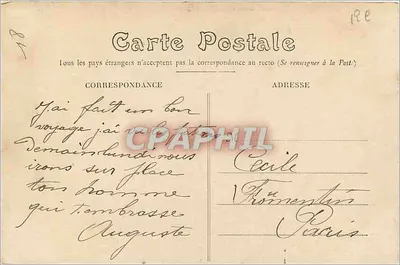 18
12 €
Carte Postale
Tous les pays étrangers n'acceptent pas la correspondance au recto (Se renseigner à la Poste)
CORRESPONDANCE
ADRESSE
J'ai fait un bon
voyage j'ai vu
Demain lundi nous
irons sur place
ton homme
qui t'embrasse
Auguste
CPAPHIL
Cecile
Fromentin
Paris